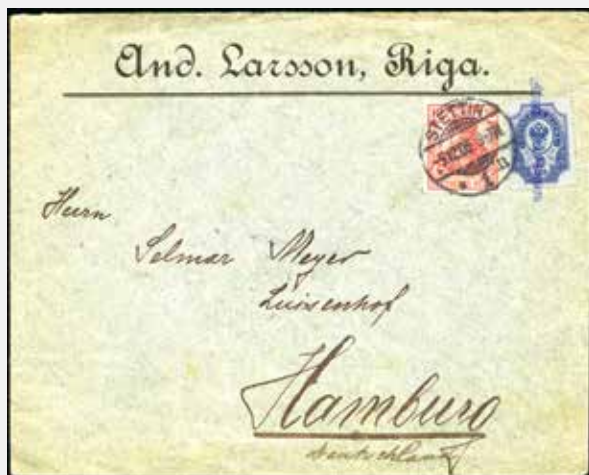 And. Larsson, Riga.
STETTIN
Herrn
Selmar Meyer
Luisenhof
Hamburg
Deutschland